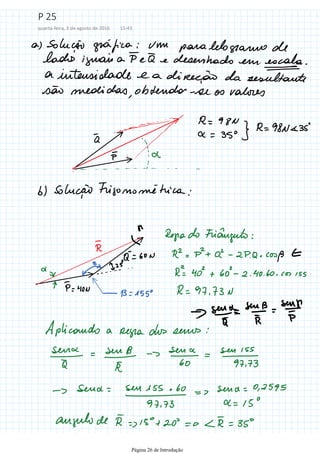 P 25
quarta-feira, 3 de agosto de 2016 15:43
a) Solução gráfica: um paralelogramo de
lados iguais a P̄ e Q̄ e desenhado em escala.
a intensidade e a direção da resultante
são medidas, obtendo-se os valores
R = 98N
α = 35°
} R = 98N ∠35°
Q̄
P̄
α
b) Solução Trigonométrica:
R̄
Q̄ = 60N
α
P̄ = 40N
β = 155°
Regra do Triângulo:
R² = P² + Q² - 2PQ. cosβ
R² = 40² + 60² - 2.40.60. cos 155
R = 97,73 N
→ senα/Q̄ = senβ/R̄ = senγ/P̄
Aplicando a regra dos senos:
senα/Q̄ = senβ/R̄ → senα/60 = sen 155/97,73
→ senα = sen 155 . 60/97,73 => senα = 0,2595
α = 15°
angulo de R̄ => 15° + 20° => ∠R̄ = 35°
Página 26 de Introdução